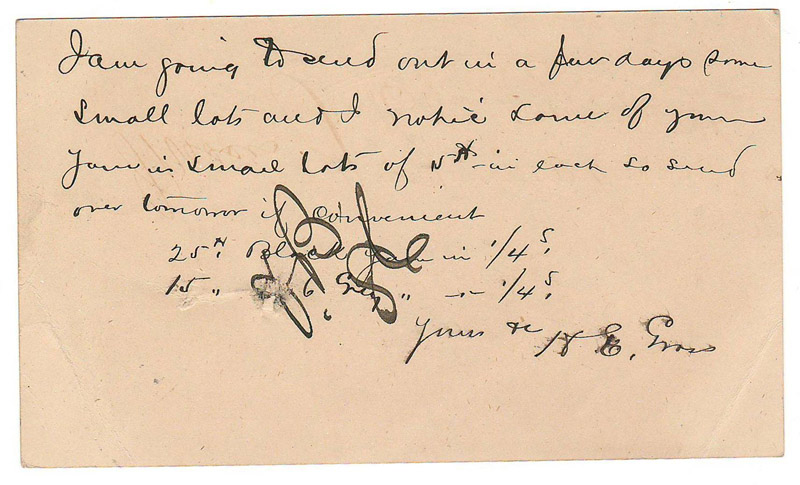 I am going to send out in a few days some
small lots and I notice some of your
yarn in small lots of 5# in each so send
over tomorrow if convenient
25#. Black yarn in 1/4s.
15 " Grey " - 1/4s.
Yours &c H E. Gross